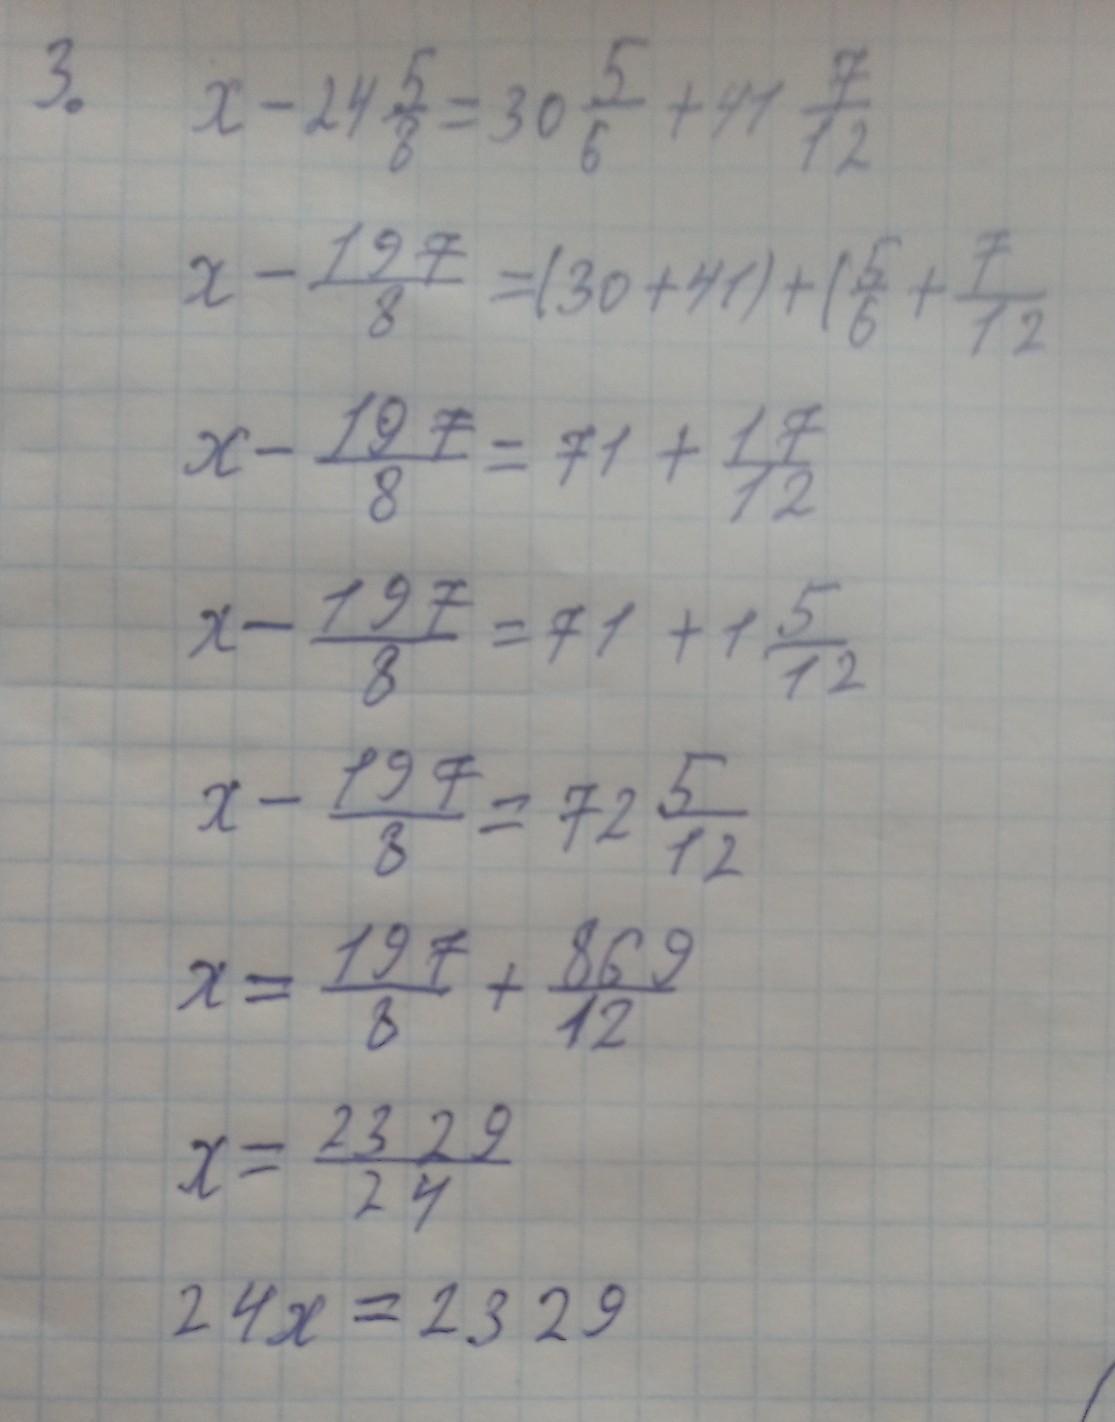 3. x - 24 5/8 = 30 5/6 + 41 7/12
x - 197/8 = (30 + 41) + (5/6 + 7/12
x - 197/8 = 71 + 17/12
x - 197/8 = 71 + 1 5/12
x - 197/8 = 72 5/12
x = 197/8 + 869/12
x = 2329/24
24x = 2329